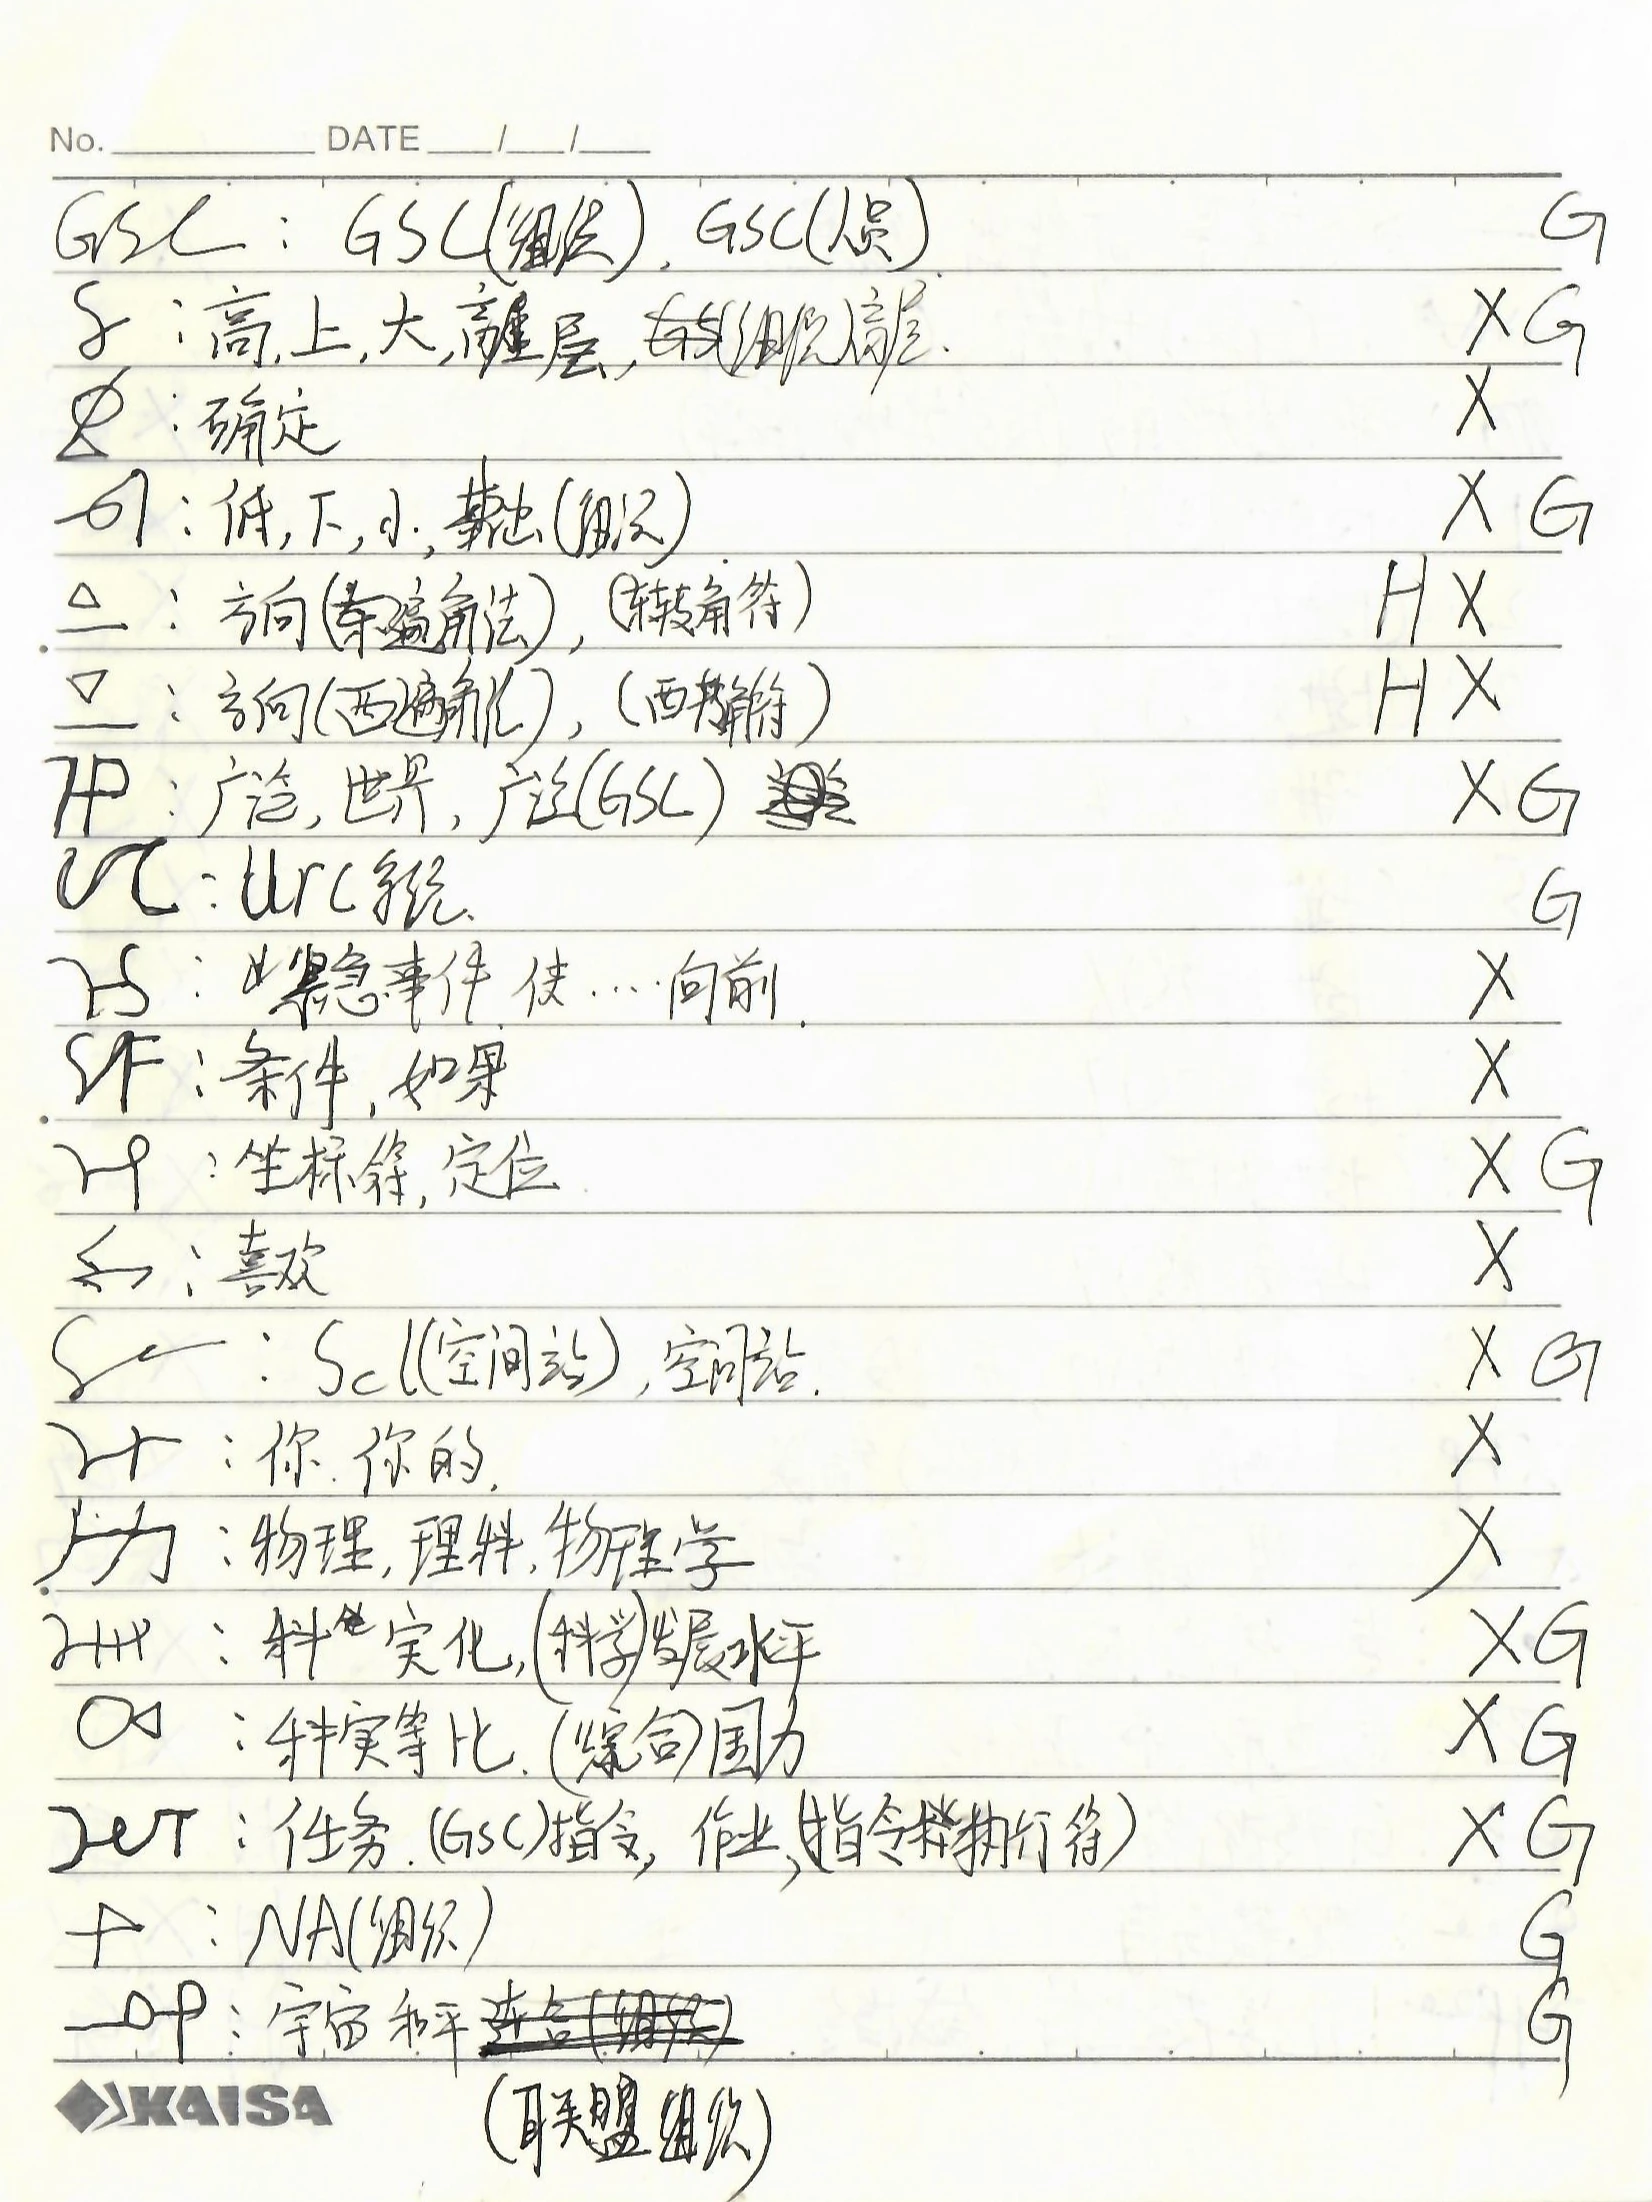 No. DATE / /
GSC : GSC(组织), GSC(人员) G
: 高,上,大,高层, X G
: 确定 X
: 低,下,小, 基础(组织) X G
: 方向(东偏角法), (东转角符) H X
: 方向(西偏角化), (西转角符) H X
: 广泛, 世界, 广泛(GSC) X G
: Urc系统. G
: 紧急事件, 使....向前. X
: 条件, 如果 X
: 坐标符, 定位 X G
: 喜欢 X
: Scl(空间站), 空间站. X G
: 你. 你的. X
: 物理, 理科, 物理学 X
: 科实化, (科学)发展水平 X G
: 科实等比. (综合)国力 X G
: 任务. (GSC)指令, 作业, (指令执行符) X G
: NA(组织) G
: 宇宙和平 G
KAISA
(联盟组织)